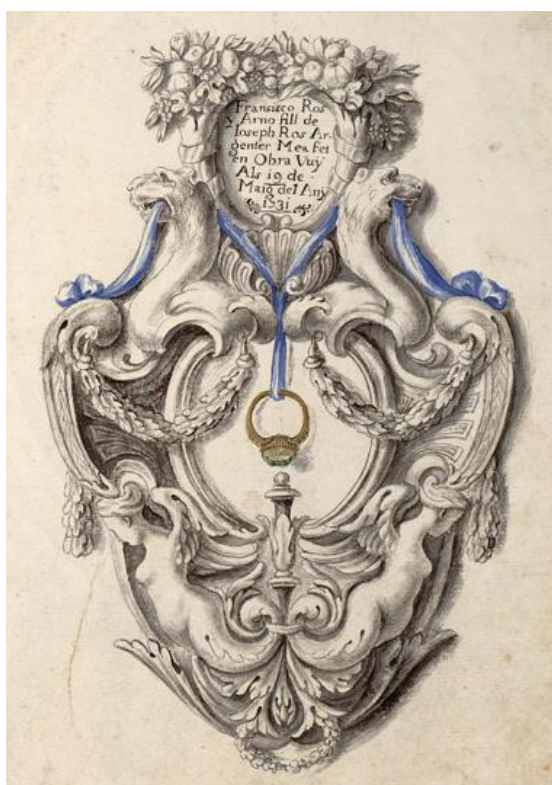 Fransisco Ros
Y Arno fill de
Ioseph Ros Ar-
genter Mea fet
en Obra Vuÿ
Als 19 de
Maig del Anÿ
1531